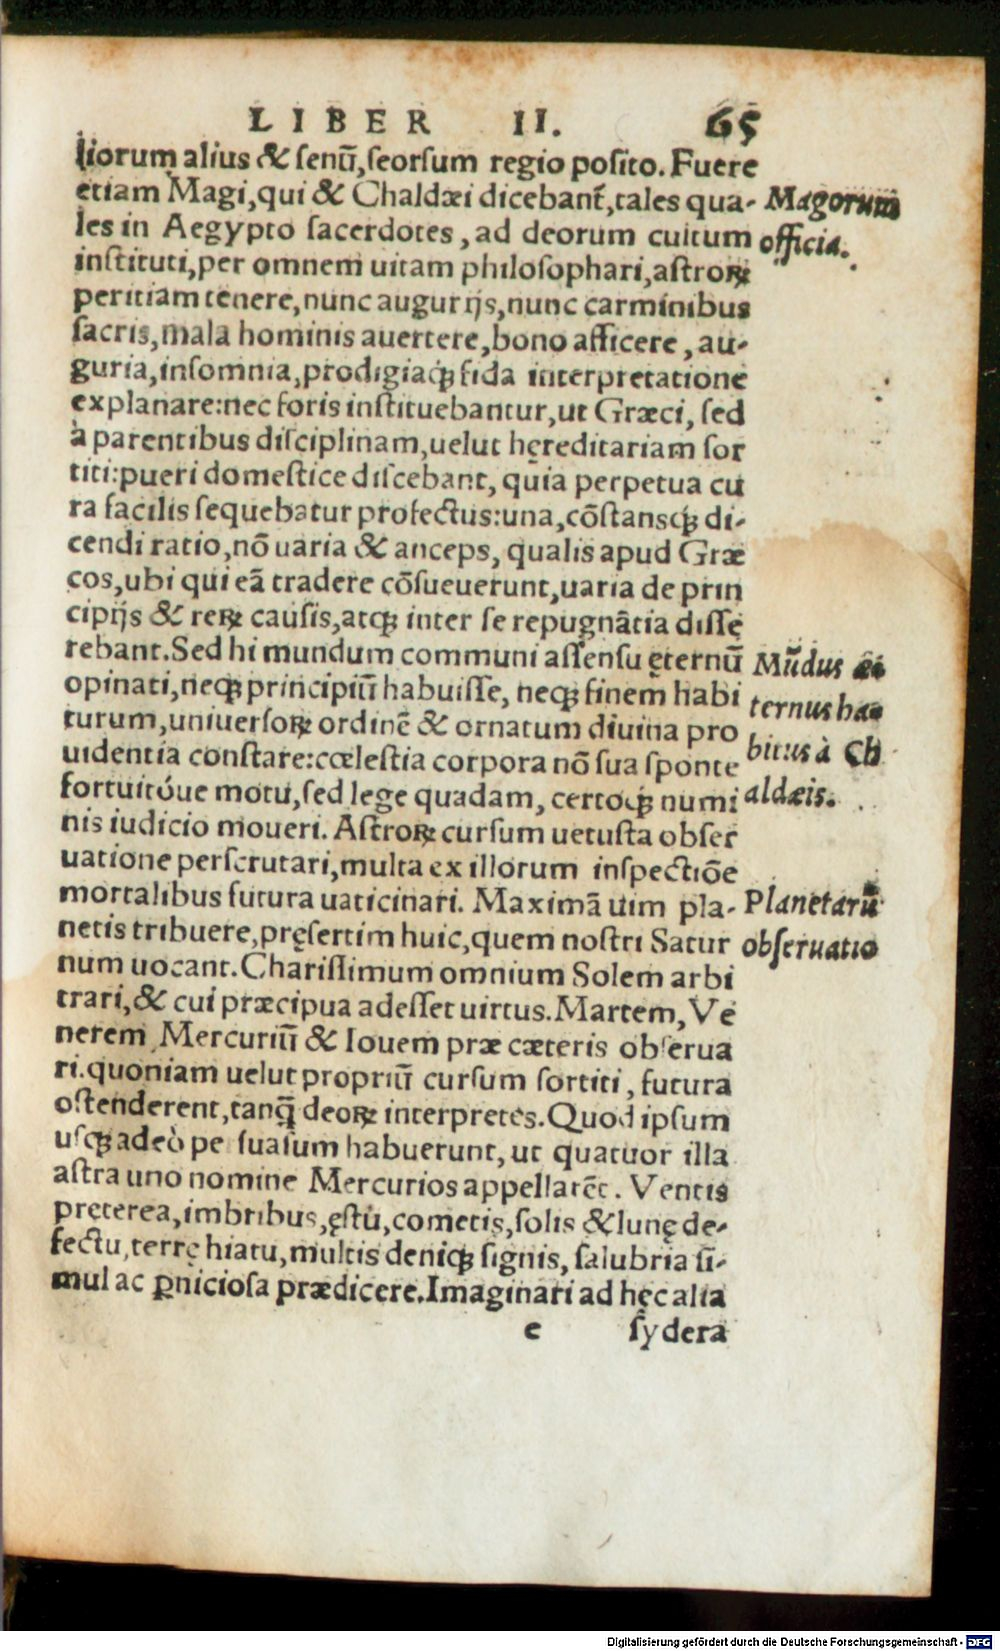 LIBER II. 65
liorum alius & senũ, seorsum regio posito. Fuere
etiam Magi, qui & Chaldæi dicebant̃, tales qua-
les in Aegypto sacerdotes, ad deorum cultum
instituti, per omnem uitam philosophari, astroꝝ
peritiam tenere, nunc augurijs, nunc carminibus
sacris, mala hominis auertere, bono afficere, au-
guria, insomnia, prodigiaq; fida interpretatione
explanare: nec foris instituebantur, ut Græci, sed
à parentibus disciplinam, uelut hęreditariam sor
titi: pueri domestice discebant, quia perpetua cu
ra facilis sequebatur profectus: una, cõstansq; di-
cendi ratio, nõ uaria & anceps, qualis apud Græ
cos, ubi qui eã tradere cõsueuerunt, uaria de prin
cipijs & reꝝ causis, atq; inter se repugnãtia disse
rebant. Sed hi mundum communi assensu ęternũ
opinati, neq; principiũ habuisse, neq; finem habi
turum, uniuersoꝝ ordinẽ & ornatum diuina pro
uidentia constare: cœlestia corpora nõ sua sponte
fortuitóue motu, sed lege quadam, certoq; numi
nis iudicio moueri. Astroꝝ cursum uetusta obser
uatione perscrutari, multa ex illorum inspectiõe
mortalibus futura uaticinari. Maximã uim pla-
netis tribuere, pręsertim huic, quem nostri Satur
num uocant. Charissimum omnium Solem arbi
trari, & cui præcipua adesset uirtus. Martem, Ve
nerem Mercuriũ & Iouem præ cæteris obserua
ri. quoniam uelut propriũ cursum sortiti, futura
ostenderent, tanq̃ deoꝝ interpretes. Quod ipsum
usq; adeò pe suasum habuerunt, ut quatuor illa
astra uno nomine Mercurios appellarẽt. Ventis
pręterea, imbribus, ęstu, cometis, solis & lunę de-
fectu, terrę hiatu, multis deniq; signis, salubria si-
mul ac ꝑniciosa prædicere. Imaginari ad hęc alia
e sydera
Magorum
officia.
Mũdus æ
ternus ha-
bitus à Ch
aldæis.
Planetarũ
obseruatio
Digitalisierung gefördert durch die Deutsche Forschungsgemeinschaft - DFG